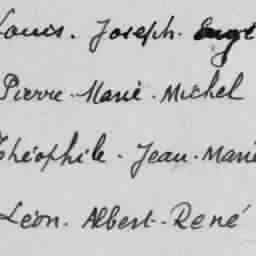 Louis. Joseph.
Pierre. Marie. Michel
Théophile. Jean. Marie
Léon. Albert. René